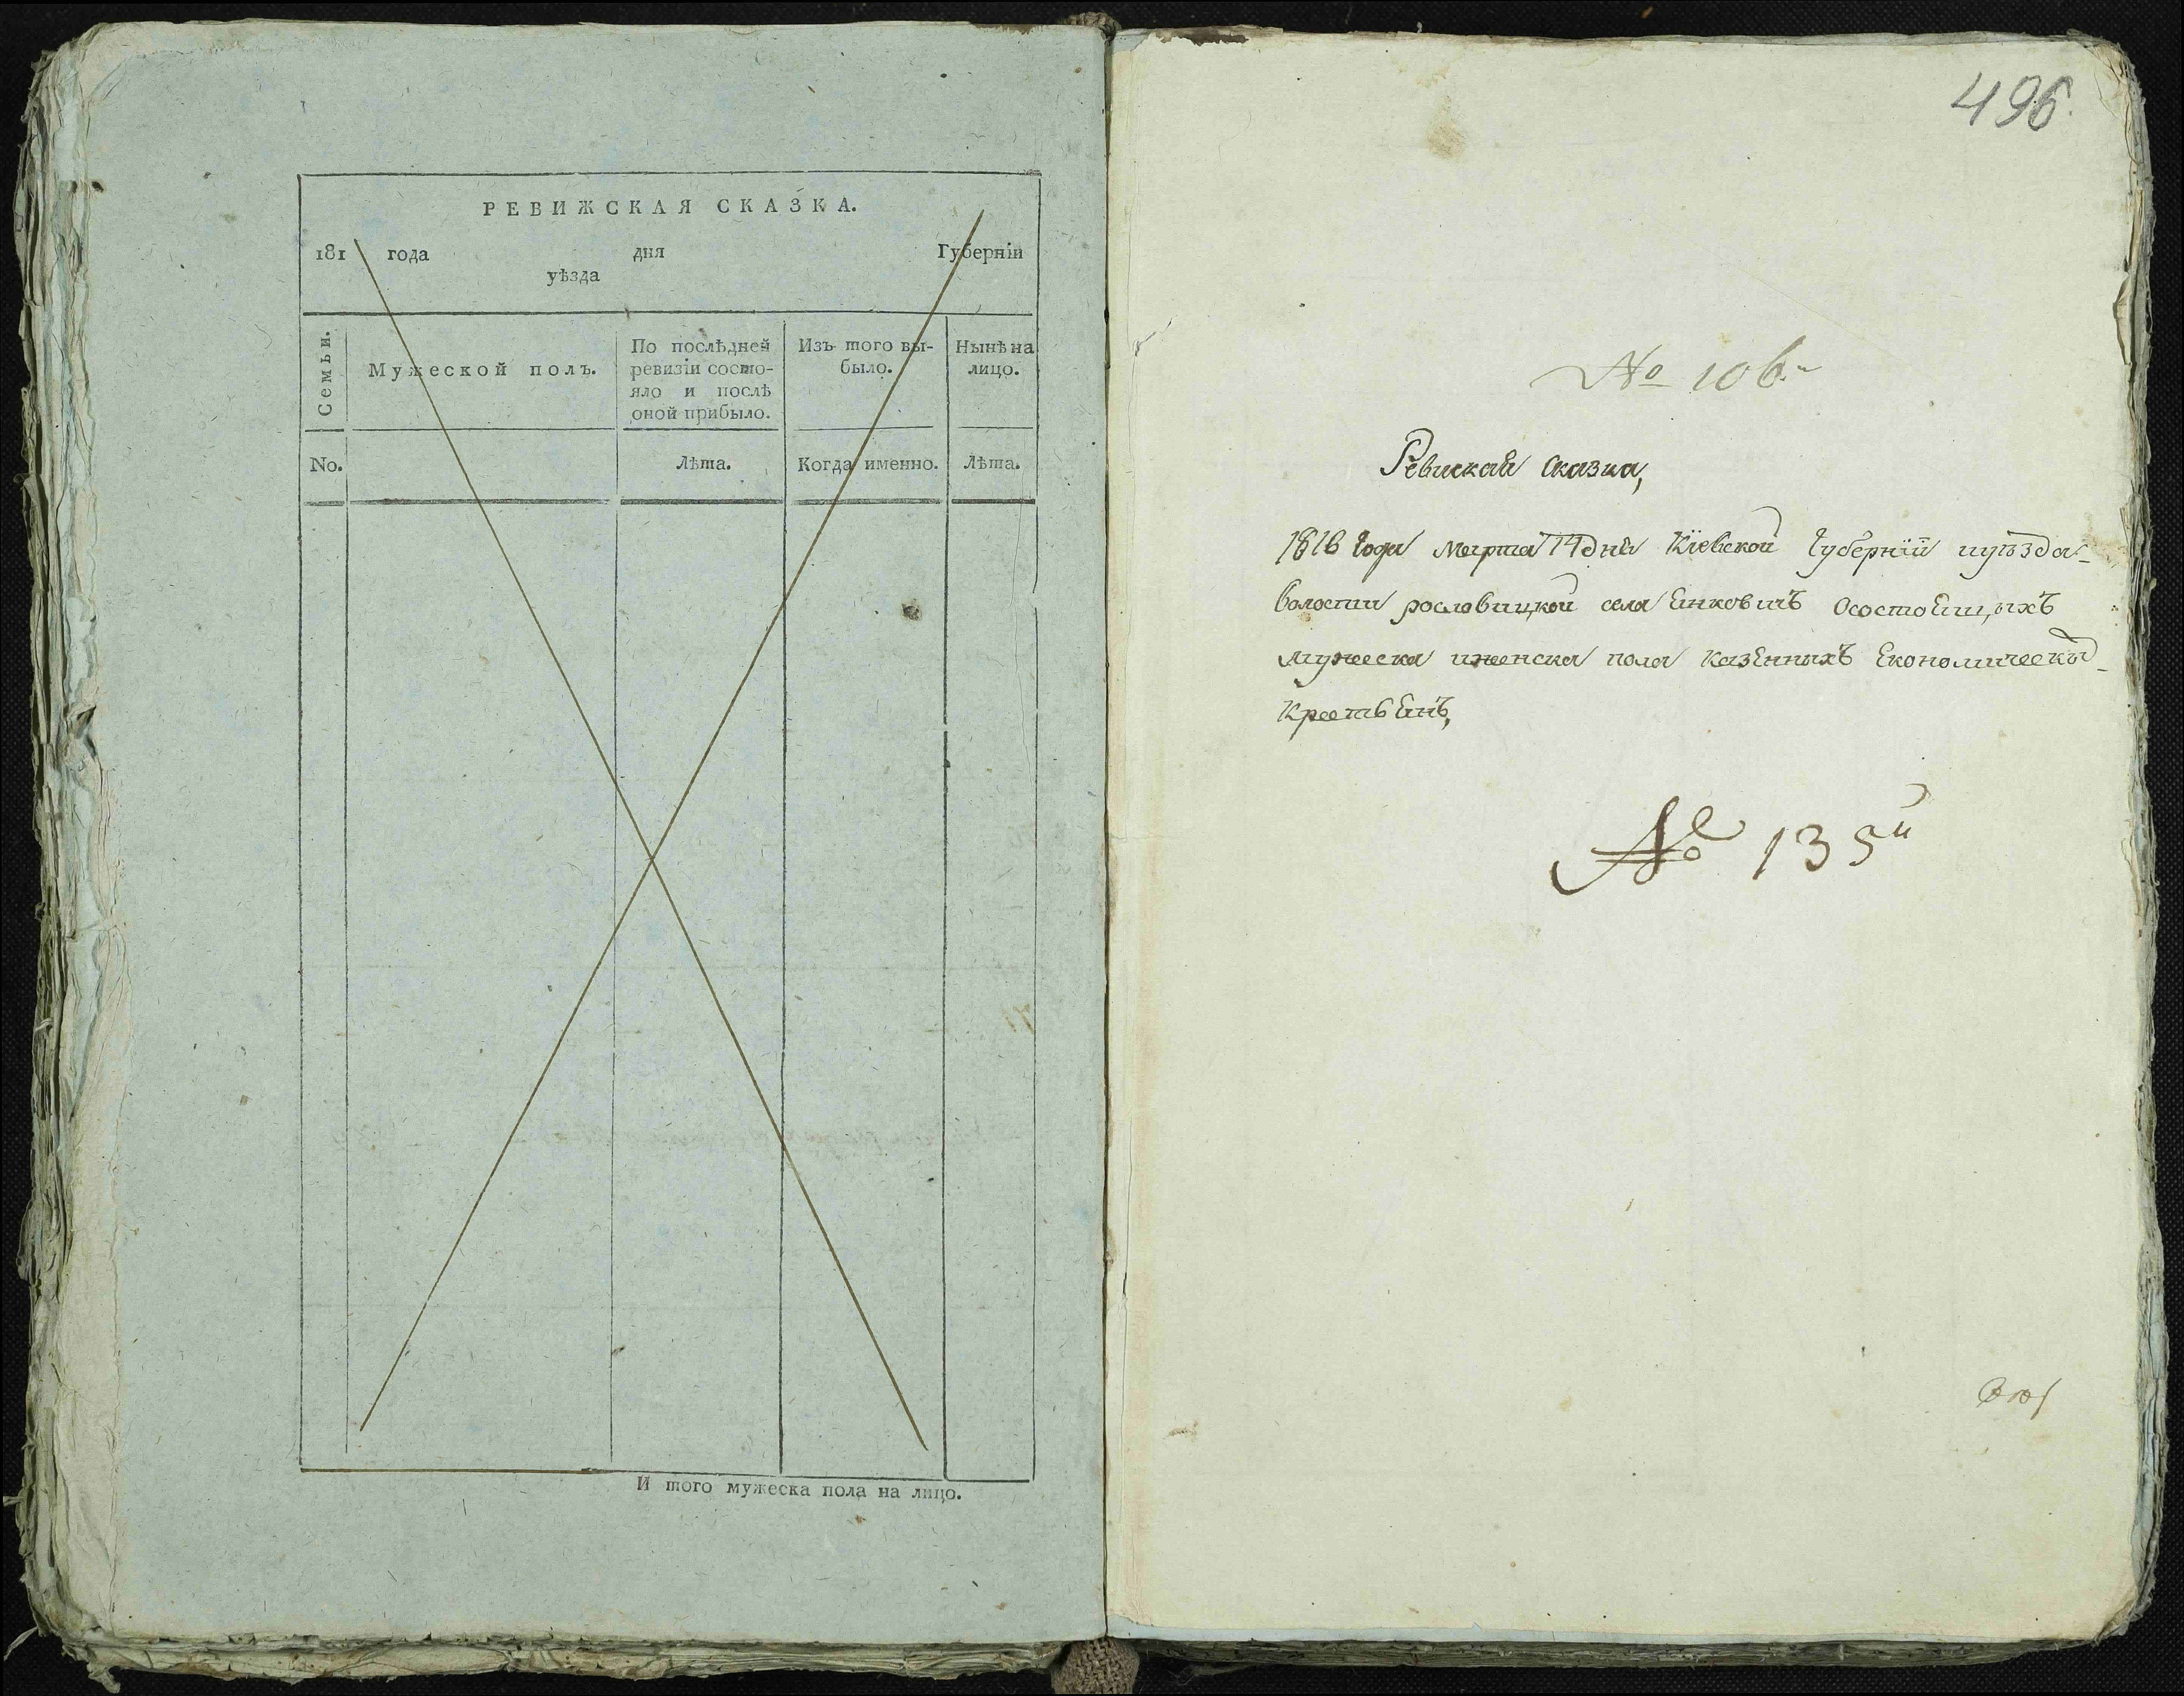 РЕВИЖСКАЯ СКАЗКА.
181 года дня Губерніи
уѣзда
Семьи.
Мужеской полъ.
По послѣдней
ревизіи состо-
яло и послѣ
оной прибыло.
Изъ того вы-
было.
Нынѣ на
лицо.
No.
Лѣта.
Когда именно.
Лѣта.
И того мужеска пола на лицо.
496.
No 106.
Ревиская сказка,
1816 Года марта 14 дня Кіевской Губерніи иуѣзда
волости рословицкой села Янковичъ Осостоящихъ
мужеска иженска пола казенныхъ Економическихъ
Крестьянъ,
No 135й